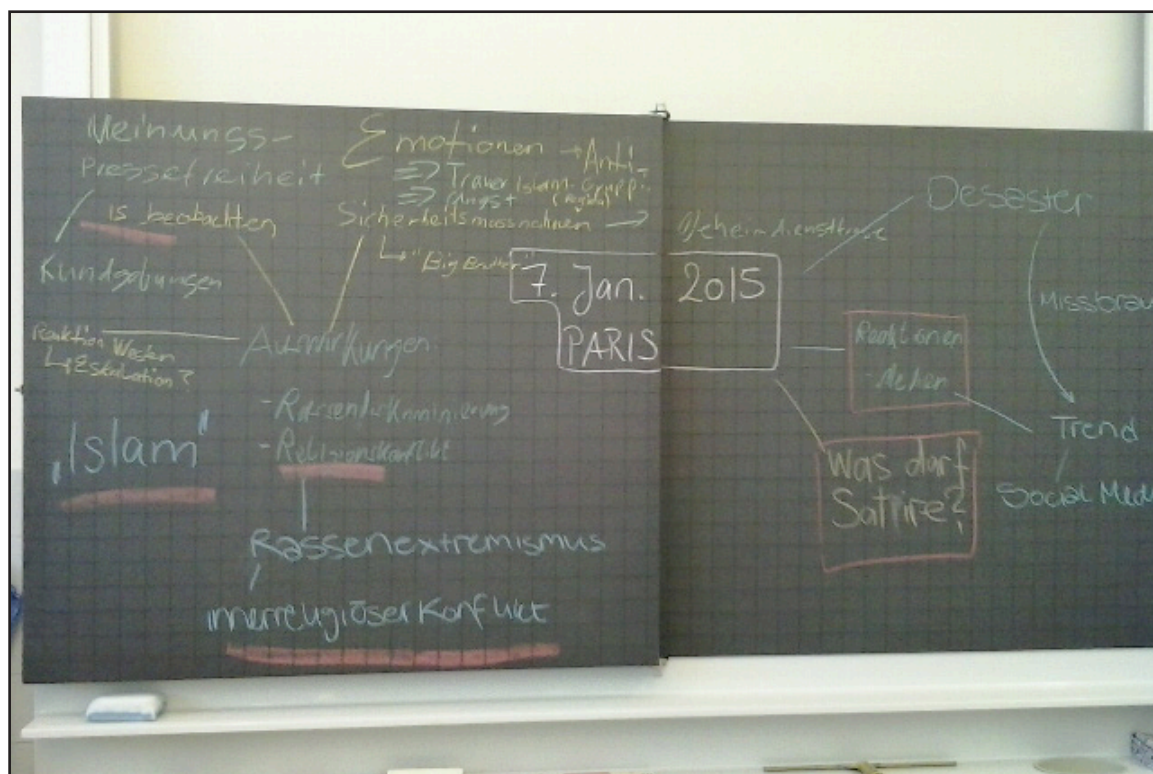 Meinungs-
Pressefreiheit
IS beobachten
Kundgebungen
Reaktion Westen
↳ Eskalation?
Emotionen → Anti-
⇒ Trauer Islam-Grupp.
⇒ Angst (Pegida)
Sicherheitsmassnahmen →
↳ "Big Brother"
Geheimdienst
7. Jan. 2015
PARIS
Auswirkungen
- Rassendiskriminierung
- Religionskonflikt
„Islam"
Rassenextremismus
innerreligiöser Konflikt
Desaster
Missbrau
Reaktionen
Trend
Social Medi
Was darf
Satire?